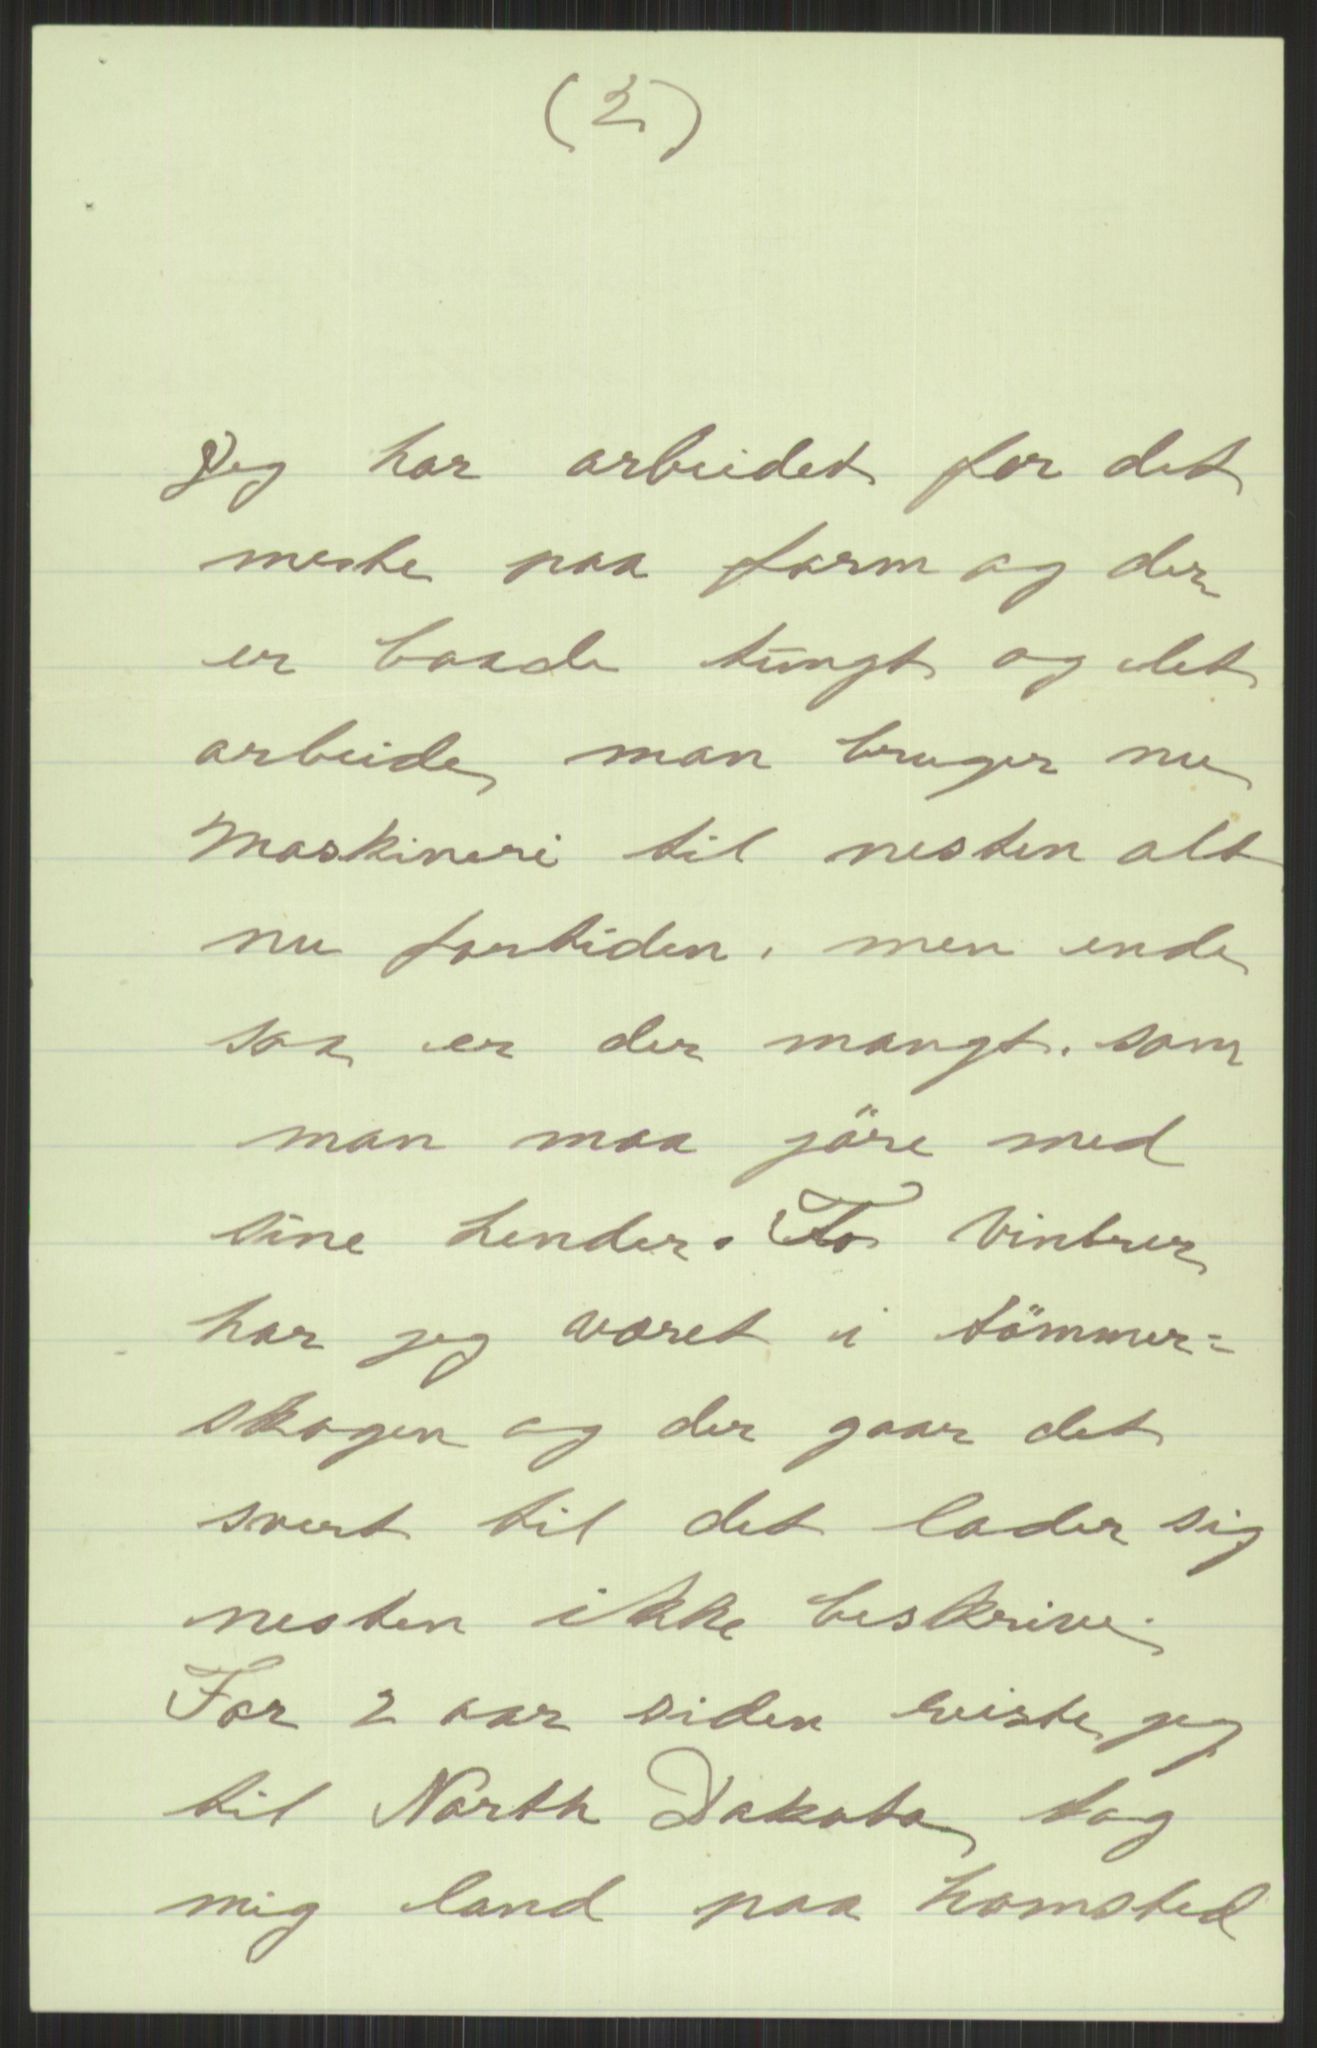 (2)
Jeg har arbeidet for det
meste paa farm og der
er baade tungt og let
arbeide, man bruger nu
Maskineri til nesten alt
nu fortiden, men ende
saa er der mangt. som
man maa jöre med
sine hender. To Vintrer
har jeg været i tömmer=
skogen og der gaar det
svert til det lader sig
nesten ikke beskrive.
For 2 aar siden reiste jeg
til North Dakota, tog
mig land paa homsted